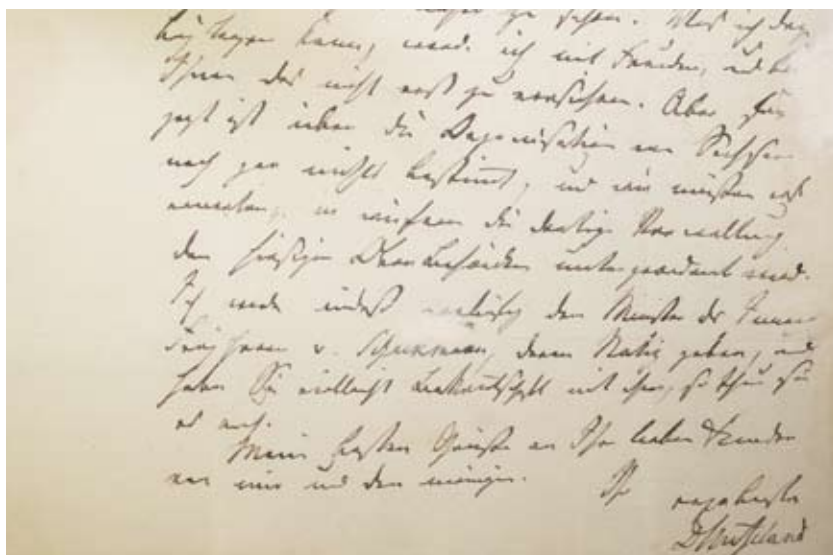 zu sehen. Was ich dazu
beytragen kann, werde ich mit Freuden, und
Ihnen das nicht erst zu versichern. Aber für
jetzt ist über die Organisation von Sachsen
noch gar nichts bestimmt, und wir müssen erst
erwarten, in wiefern die dortige Verwaltung
den hiesigen Oberbehörden untergeordnet wird.
Ich werde indeß vorläufig dem Minister des Innern
Freyherrn v. Schuckmann, davon Notiz geben, und
haben Sie vielleicht Bekanntschaft mit ihm, so thun Sie
es auch.
Meine besten Grüße an Ihre lieben Freunde
von mir und den meinigen.
Ihr ergebenster